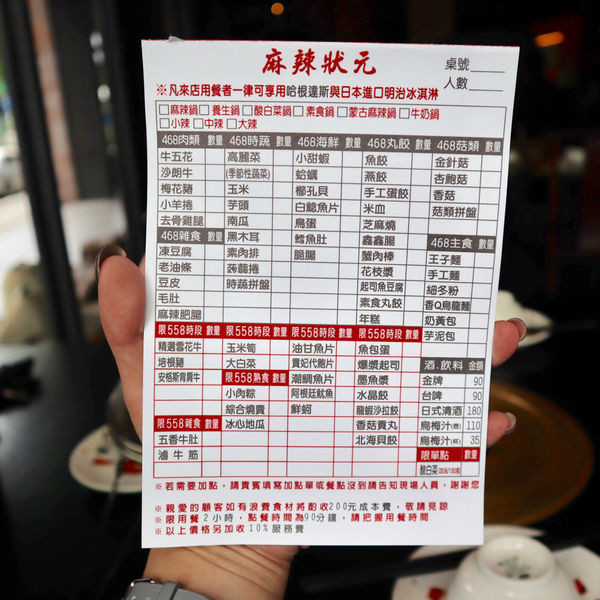 麻辣狀元
桌號
人數
※凡來店用餐者一律可享用哈根達斯與日本進口明治冰淇淋
□麻辣鍋 □養生鍋 □酸白菜鍋 □素食鍋 □蒙古麻辣鍋 □牛奶鍋
□小辣 □中辣 □大辣
468肉類 數量 468時蔬 數量 468海鮮 數量 468丸餃 數量 468菇類 數量
牛五花 高麗菜 小甜蝦 魚餃 金針菇
沙朗牛 (季節性蔬菜) 蛤蠣 燕餃 杏鮑菇
梅花豬 玉米 櫛孔貝 手工蛋餃 香菇
小羊捲 芋頭 白鯰魚片 米血 菇類拼盤
去骨雞腿 南瓜 鳥蛋 芝麻燒
468雜食 數量 黑木耳 鱈魚肚 鑫鑫腸 468主食 數量
凍豆腐 素肉排 脆腸 蟹肉棒 王子麵
老油條 蒟蒻捲 花枝漿 手工麵
豆皮 時蔬拼盤 起司魚豆腐 細冬粉
毛肚 素食丸餃 香Q烏龍麵
麻辣肥腸 年糕 奶黃包
限558時段 數量 限558時段 數量 限558時段 數量 限558時段 數量 芋泥包
精選雪花牛 玉米筍 油甘魚片 魚包蛋
培根豬 大白菜 貴妃代鮑片 爆漿起司 酒.飲料 金額
安格斯背肩牛 限558熟食 數量 潮鯛魚片 墨魚漿 金牌 90
小肉粽 阿根廷魷魚 水晶餃 台啤 90
綜合燒賣 鮮蚵 龍蝦沙拉餃 日式清酒 180
限558雜食 數量 冰心地瓜 香菇貢丸 烏梅汁(壺) 110
五香牛肚 北海貝餃 烏梅汁(杯) 35
滷牛筋 限單點 數量
酸白菜(30元/150克)
※若需要加點，請貴賓填寫加點單或餐點沒到請告知現場人員，謝謝您
※親愛的顧客如有浪費食材將酌收200元成本費，敬請見諒
※限用餐2小時，點餐時間為90分鐘，請把握用餐時間
※以上價格另加收10%服務費